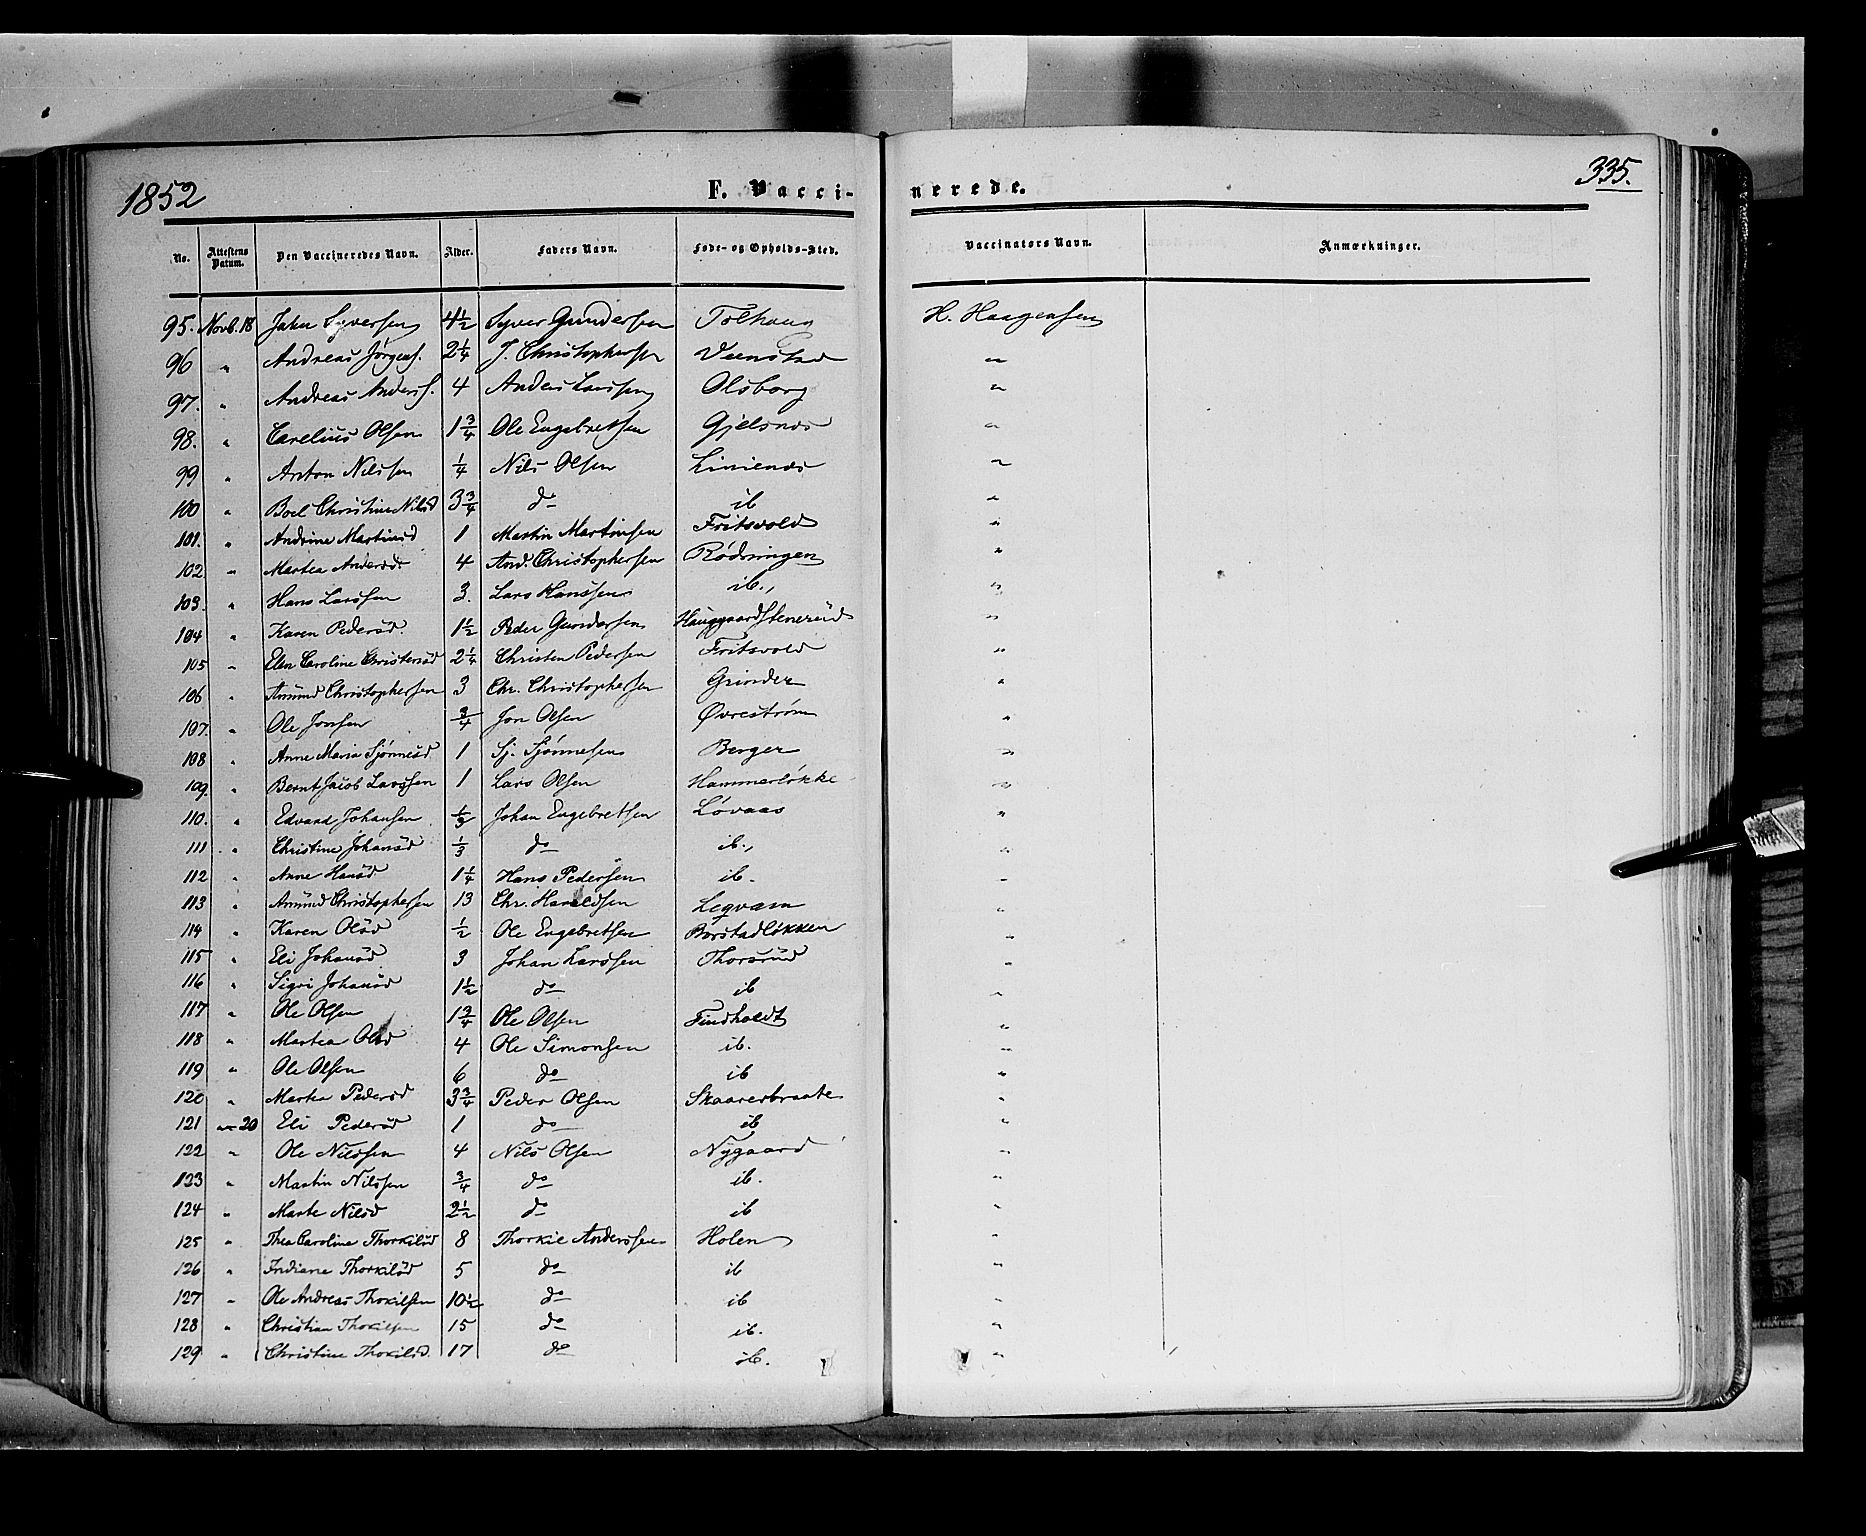 1852 F. Vaccinerede. 335.
No. Attestens Datum. Den Vaccineredes Navn. Alder. Faders Navn. Føde- og Opholds-Sted. Vaccinators Navn. Anmærkninger.
95. Novb. 18 Syversen 4½ Syver Gundersen Tolhaug H. Haagensen
96 " Andreas Jørgens. 2¼ J. Christophersen Veenstad "
97. " Andreas Anders. 4 Anders Larssen Olsborg "
98. " Carelius Olsen 1¾ Ole Engebretsen Gjelsnes "
99 " Anton Nilssen ¼ Nils Olsen Linienes "
100 " Boel Christine Nilsd 3¾ do ib "
101. " Andrine Martinsd 1 Martin Martinsen Fritsvold "
102 " Martea Andersd. 4 And. Christophersen Rødningen "
103. " Hans Larssen 3. Lars Hanssen ib., "
104 " Karen Pedersd. 1½ Peder Gundersen Hauggaardstenerud "
105 " Elen Caroline Christensd 2¼ Christen Pedersen Fritsvold "
106 " Amund Christophersen 3 Chr. Christophersen Grinder "
107. " Ole Jonsen ¾ Jon Olsen Øvrestrøm "
108 " Anne Maria Sjønnesd 1 Sj. Sjønnesen Berger "
109. " Bernt Jacob Larssen 1 Lars Olsen Hammerløkke "
110. " Edvard Johansen ⅓ Johan Engebretsen Løvaas "
111 " Christine Johansd ⅓ do ib., "
112 " Anne Hansd 1¼ Hans Pedersen ib. "
113 " Amund Christophersen 13 Chr. Haraldsen Legvam "
114 " Karen Olsd ½ Ole Engebretsen Børstadløkken "
115 " Eli Johansd 3 Johan Larssen Thorsrud "
116 " Sigri Johansd 1½ do ib "
117 " Ole Olsen 1¾ Ole Olsen Findholdt "
118 " Martea Olsd 4 Ole Simonsen ib. "
119 " Ole Olsen 6 do ib "
120 " Martea Pedersd 3¾ Peder Olsen Skaaresbraate "
121 " 20 Eli Pedersd 1 do ib "
122 " Ole Nilssen 4 Nils Olsen Nygaard "
123 " Martin Nilssen ¾ do ib. "
124 " Marte Nilsd 2½ do ib "
125 " Thea Caroline Thorkilsd 8 Thorkil Anderssen Holen "
126 " Indiane Thorkilsd 5 do ib "
127 " Ole Andreas Thokilsen 10½ do ib "
128 " Christian Thokilsen 15 do ib. "
129 " Christine Thokilsd. 17 do ib. "